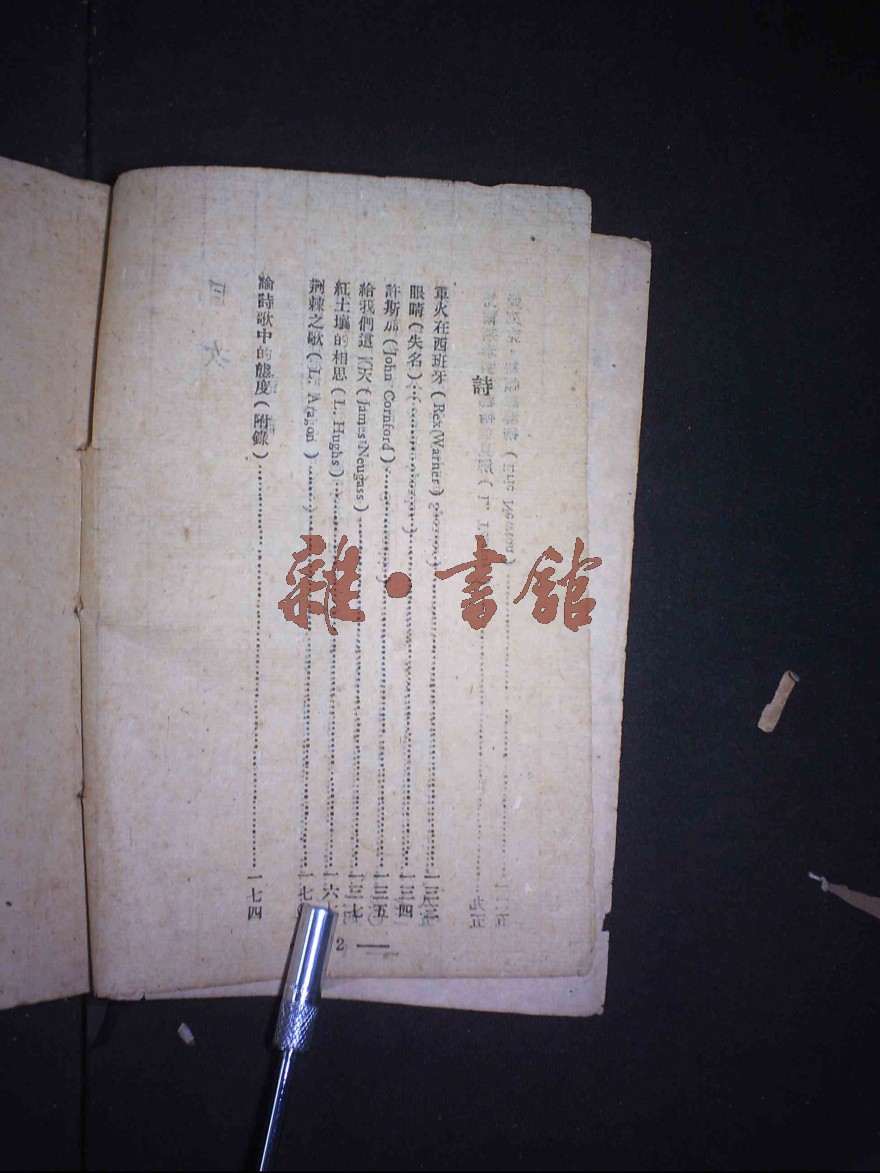 詩
軍火在西班牙(Rex Warner)
眼睛(失名)一三四
許斯加(John Cornford)一三五
給我們這一天(James Neugass)一三七
紅土壤的相思(L. Hughs)
荊棘之歌(L. Aragon)
論詩歌中的態度(附錄)一七四
2
雜·書館